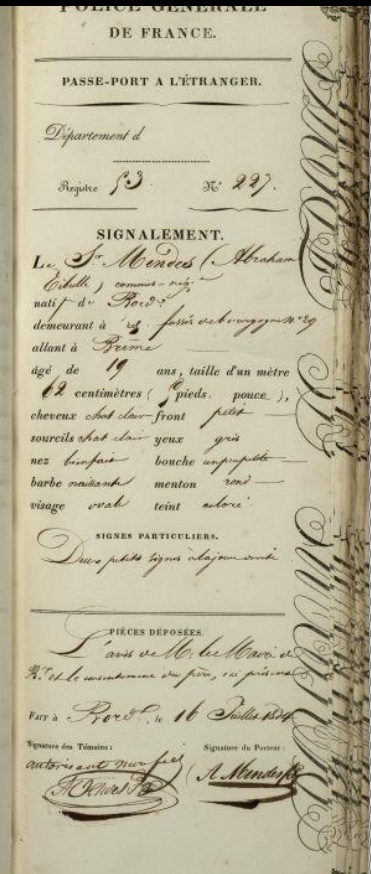 POLICE GÉNÉRALE
DE FRANCE.
PASSE-PORT A L'ÉTRANGER.
Département d
Registre 53. N° 227.
SIGNALEMENT.
Le Sr Mendes (Abraham
) commis-nég.t
natif de Bord.x
demeurant à id. fossés de bourgogne n° 29
allant à Brême
âgé de 19 ans, taille d'un mètre
62 centimètres ( pieds. pouce ),
cheveux chat clair front petit
sourcils chat clair yeux gris
nez bienfait bouche un peu petite
barbe naissante menton rond
visage ovale teint coloré
SIGNES PARTICULIERS.
Deux petits signes à la joue droite
PIÈCES DÉPOSÉES.
L'avis de Mr le Maire de
Bx et le consentement du père, ici présent
FAIT à Bord.x, le 16 Juillet
Signature des Témoins: Signature du Porteur:
autorisant mon fils
A Mendes